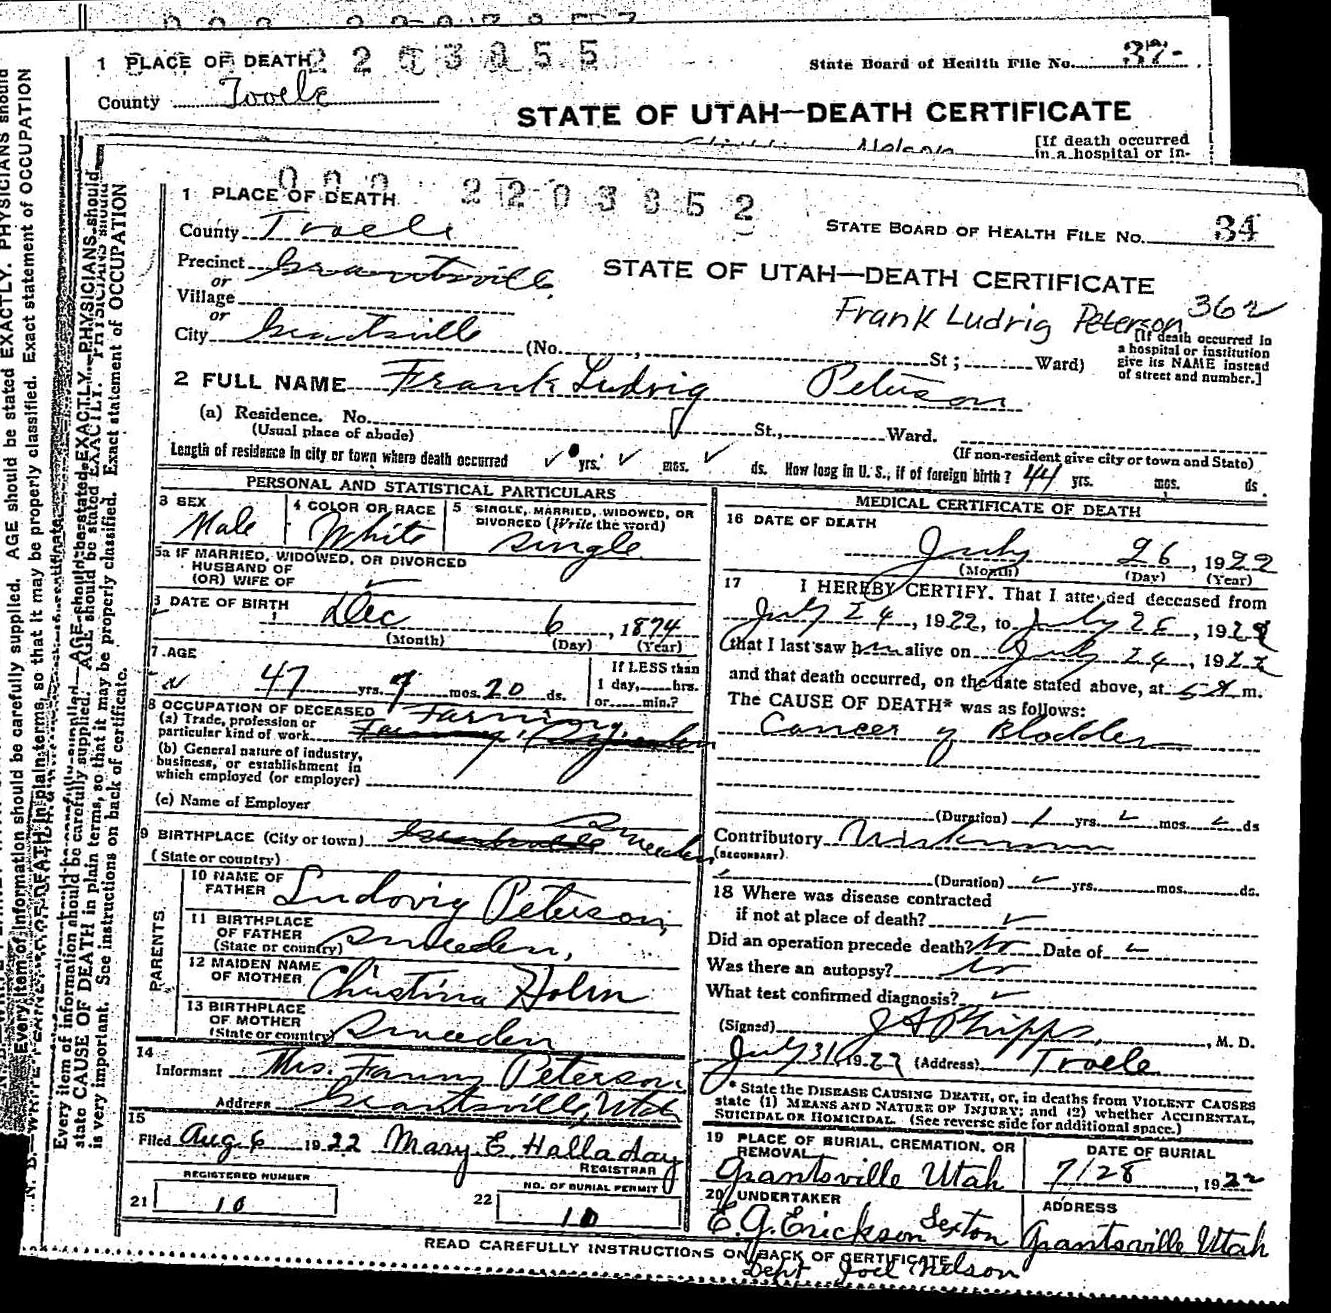 1 PLACE OF DEATH
2203855
State Board of Health File No. 37
County Tooele
STATE OF UTAH—DEATH CERTIFICATE
[If death occurred
in a hospital or in-
000 2203852
1 PLACE OF DEATH
County Tooele
STATE BOARD OF HEALTH FILE No. 34
Precinct Grantsville
STATE OF UTAH—DEATH CERTIFICATE
or
Village
Frank Ludvig Peterson 362
or
City Grantsville (No. , St ; Ward)
[If death occurred in
a hospital or institution
give its NAME instead
of street and number.]
2 FULL NAME Frank Ludvig Peterson
(a) Residence. No. St., Ward.
(Usual place of abode)
(If non-resident give city or town and State)
Length of residence in city or town where death occurred ✓ yrs. ✓ mos. ✓ ds. How long in U. S., if of foreign birth? 44 yrs. mos. ds.
PERSONAL AND STATISTICAL PARTICULARS
3 SEX
Male
4 COLOR OR RACE
White
5 SINGLE, MARRIED, WIDOWED, OR
DIVORCED (Write the word)
Single
5a IF MARRIED, WIDOWED, OR DIVORCED
HUSBAND OF
(OR) WIFE OF
6 DATE OF BIRTH Dec 6, 1874
(Month) (Day) (Year)
7 AGE
47 yrs. 7 mos. 20 ds.
If LESS than
1 day, hrs.
or min.?
8 OCCUPATION OF DECEASED
(a) Trade, profession or
particular kind of work
Farming
(b) General nature of industry,
business, or establishment in
which employed (or employer)
(c) Name of Employer
9 BIRTHPLACE (City or town) Grantsville Sweeden
(State or country)
PARENTS
10 NAME OF
FATHER Ludovig Peterson,
11 BIRTHPLACE
OF FATHER
(State or country) Sweeden,
12 MAIDEN NAME
OF MOTHER Christina Holm
13 BIRTHPLACE
OF MOTHER
(State or country) Sweeden
14
Informant Mrs. Fanny Peterson
Address Grantsville, Utah
15
Filed Aug 6 1922 Mary E. Halladay
REGISTRAR
REGISTERED NUMBER
21 10
NO. OF BURIAL PERMIT
22 10
MEDICAL CERTIFICATE OF DEATH
16 DATE OF DEATH
July 26, 1922
(Month) (Day) (Year)
17 I HEREBY CERTIFY. That I attended deceased from
July 24, 1922, to July 26, 1922
that I last saw him alive on July 24, 1922
and that death occurred, on the date stated above, at 5 A m.
The CAUSE OF DEATH* was as follows:
Cancer of Bladder
(Duration) 1 yrs. ✓ mos. ✓ ds
Contributory Unknown
(SECONDARY)
(Duration) ✓ yrs. mos. ds.
18 Where was disease contracted
if not at place of death? ✓
Did an operation precede death? No Date of ✓
Was there an autopsy? No
What test confirmed diagnosis? ✓
(Signed) J A Phipps, M. D.
July 31, 1922 (Address) Tooele
* State the DISEASE CAUSING DEATH, or, in deaths from VIOLENT CAUSES
state (1) MEANS AND NATURE OF INJURY; and (2) whether ACCIDENTAL,
SUICIDAL OR HOMICIDAL. (See reverse side for additional space.)
19 PLACE OF BURIAL, CREMATION, OR
REMOVAL
Grantsville Utah
DATE OF BURIAL
7/28, 1922
20 UNDERTAKER
E. G. Erickson Sexton
ADDRESS
Grantsville Utah
READ CAREFULLY INSTRUCTIONS ON BACK OF CERTIFICATE
Dept Joel Nelson
Every item of information should be carefully supplied. AGE should be stated EXACTLY. PHYSICIANS should
state CAUSE OF DEATH in plain terms, so that it may be properly classified. Exact statement of OCCUPATION
is very important. See instructions on back of certificate.